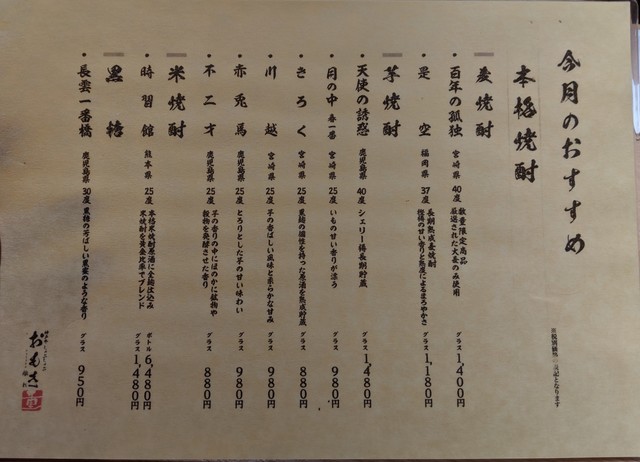 今月のおすすめ
本格焼酎
※税別価格の表記となります
麦焼酎
・百年の孤独 宮崎県 40度 数量限定商品 厳選された大麦のみ使用 グラス 1,400円
・是空 福岡県 37度 長期熟成麦焼酎 樫樽の甘い香りと熟度によるまろやかさ グラス 1,180円
芋焼酎
・天使の誘惑 鹿児島県 40度 シェリー樽長期貯蔵 グラス 1,480円
・月の中 春一番 宮崎県 25度 いもの甘い香りが漂う グラス 980円
・きろく 宮崎県 25度 黒麹の個性を持った原酒を熟成貯蔵 グラス 880円
・川越 宮崎県 25度 芋の香ばしい風味と柔らかな甘み グラス 980円
・赤兎馬 鹿児島県 25度 とろりとした芋の甘い味わい グラス 980円
・不二才 鹿児島県 25度 芋の香りの中にほのかに鉱物や 穀物を発酵させた香り グラス 880円
米焼酎
・時習館 熊本県 25度 本格米焼酎原酒に全麹仕込み 米焼酎を黄金比率でブレンド ボトル 6,480円 グラス 1,480円
黒糖
・長雲一番橋 鹿児島県 30度 黒糖の芳ばしい黒蜜のような香り グラス 950円
おもき